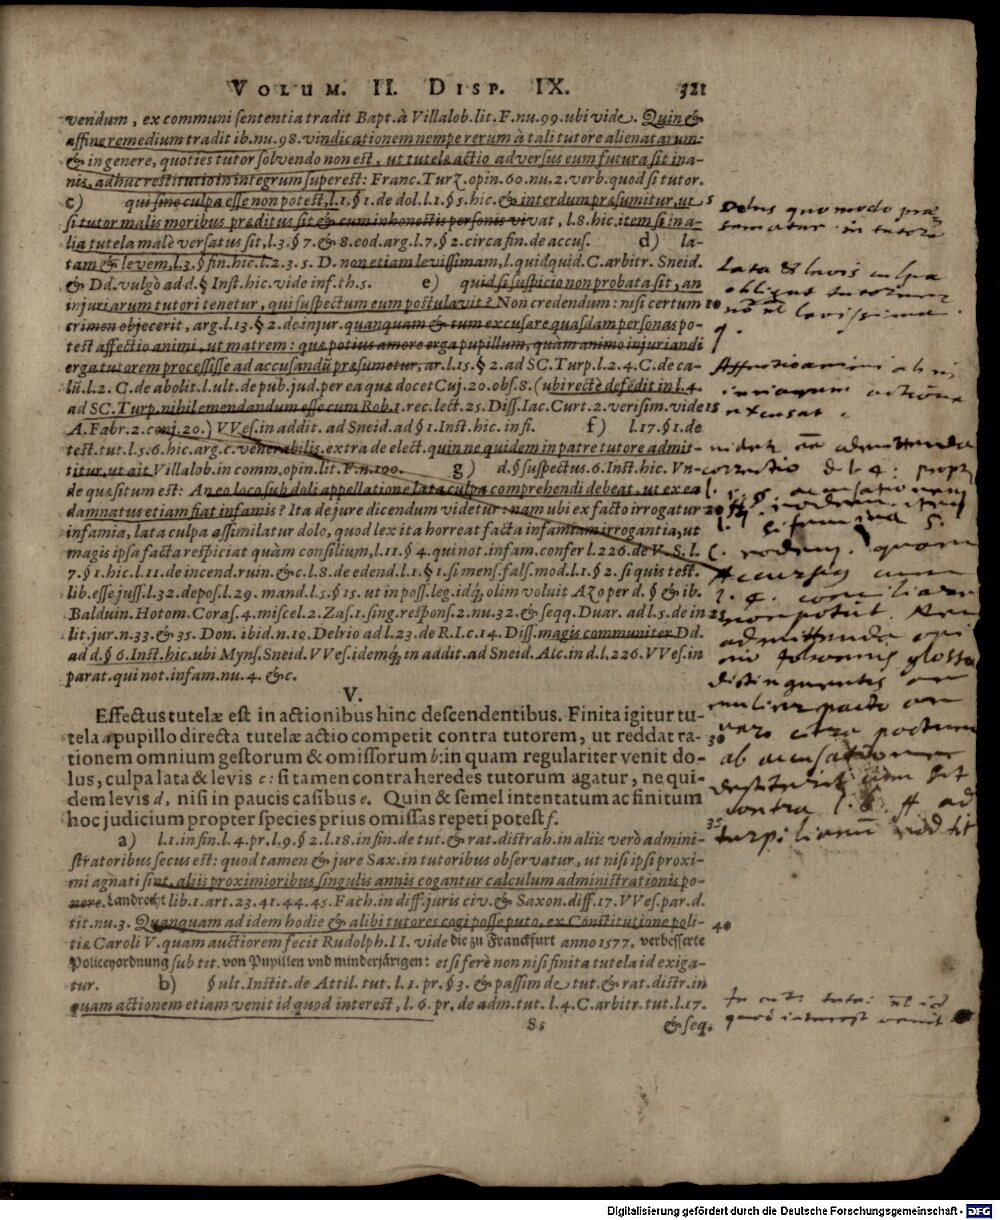 VOLUM. II. DISP. IX. 321
vendum, ex communi sententia tradit Bapt. à Villalob. lit. F. nu. 99. ubi vide. Quin &
affine remedium tradit ib. nu. 98. vindicationem nempe rerum à tali tutore alienatarum:
& in genere, quoties tutor solvendo non est, ut tutelæ actio adversus eum futura sit ina-
nis, adhuc restitutio in integrum superest: Franc. Turz. opin. 60. nu. 2. verb. quod si tutor.
c) qui sine culpa esse non potest, l. 1. § 1. de dol. l. 1. § 5. hic. & interdum præsumitur, ut 5
si tutor malis moribus præditus sit & cum inhonestis personis vivat, l. 8. hic. item si in a-
lia tutela malè versatus sit, l. 3. § 7. & 8. eod. arg. l. 7. § 2. circa fin. de accus. d) la-
tam & levem, l. 3. § fin. hic. l. 2. 3. 5. D. non etiam levissimam, l. quidquid. C. arbitr. Sneid.
& Dd. vulgò ad d. § Inst. hic. vide inf. th. 5. e) quid si suspicio non probata sit, an
injuriarum tutori tenetur, qui suspectum eum postulavit? Non credendum: nisi certum 10
crimen objecerit, arg. l. 13. § 2. de injur. quanquam & tum excusare quasdam personas po-
test affectio animi, ut matrem: quæ potius amore erga pupillum, quàm animo injuriandi
erga tutorem processisse ad accusandũ præsumetur, ar. l. 15. § 2. ad SC. Turp. l. 2. 4. C. de ca-
lũ. l. 2. C. de abolit. l. ult. de pub. jud. per ea quæ docet Cuj. 20. obs. 8. (ubi rectè defēdit in l. 4.
ad SC. Turp. nihil emendandum esse cum Rob. 1. rec. lect. 25. Diss. Iac. Curt. 2. verisim. vide 15
A. Fabr. 2. conj. 20.) VVes. in addit. ad Sneid. ad § 1. Inst. hic. in fi. f) l. 17. § 1. de
test. tut. l. 5. 6. hic. arg. c. venerabilis. extra de elect. quin ne quidem in patre tutore admit-
titur, ut ait Villalob. in comm. opin. lit. F. n. 100. g) d. § suspectus. 6. Inst. hic. Vn-
de quæsitum est: An eo loco sub doli appellatione lata culpa comprehendi debeat, ut ex ea
damnatus etiam fiat infamis? Ita de jure dicendum videtur: nam ubi ex facto irrogatur 20
infamia, lata culpa assimilatur dolo, quod lex ita horreat facta infamiam irrogantia, ut
magis ipsa facta respiciat quàm consilium, l. 11. § 4. qui not. infam. confer l. 226. de V. S. l.
7. § 1. hic. l. 11. de incend. ruin. &c. l. 8. de edend. l. 1. § 1. si mens. fals. mod. l. 1. § 2. si quis test.
lib. esse juss. l. 32. depos. l. 29. mand. l. 5. § 15. ut in poss. leg. idq́, olim voluit Azo per d. § & ib.
Balduin. Hotom. Coras. 4. miscel. 2. Zas. 1. sing. respons. 2. nu. 32. & seqq. Duar. ad l. 5. de in 25
lit. jur. n. 33. & 35. Don. ibid. n. 10. Delrio ad l. 23. de R. I. c. 14. Diss. magis communiter Dd.
ad d. § 6. Inst. hic. ubi Myns. Sneid. VVes. idemq́, in addit. ad Sneid. Alc. in d. l. 226. VVes. in
parat. qui not. infam. nu. 4. &c.
V.
Effectus tutelæ est in actionibus hinc descendentibus. Finita igitur tu-
tela a pupillo directa tutelæ actio competit contra tutorem, ut reddat ra- 30
tionem omnium gestorum & omissorum b: in quam regulariter venit do-
lus, culpa lata & levis c: si tamen contra heredes tutorum agatur, ne qui-
dem levis d, nisi in paucis casibus e. Quin & semel intentatum ac finitum
hoc judicium propter species prius omissas repeti potest f.
a) l. 1. in fin. l. 4. pr. l. 9. § 2. l. 18. in fin. de tut. & rat. distrah. in aliis verò admini- 35
stratoribus secus est: quod tamen & jure Sax. in tutoribus observatur, ut nisi ipsi proxi-
mi agnati sint, aliis proximioribus singulis annis cogantur calculum administrationis po-
nere. Landrecht lib. 1. art. 23. 41. 44. 45. Fach. in diff. juris civ. & Saxon. diff. 17. VVes. par. d.
tit. nu. 3. Quanquam ad idem hodie & alibi tutores cogi posse puto, ex Constitutione poli- 40
tiæ Caroli V. quam auctiorem fecit Rudolph. II. vide die zu Franckfurt anno 1577. verbesserte
Policeyordnung sub tit. von Pupillen vnd minderjärigen: etsi ferè non nisi finita tutela id exiga-
tur. b) § ult. Instit. de Attil. tut. l. 1. pr. § 3. & passim de tut. & rat. distr. in
quam actionem etiam venit id quod interest, l. 6. pr. de adm. tut. l. 4. C. arbitr. tut. l. 17.
Ss & seq.
Dolus quomodo præ
sumatur in tutore
Lata & levis culpa
obligat tutorem
levissima.
Affectio animi
injuriarum actione
excusat.
admittenda
correctio d. l. 4.
quam
Accursius cum
l. 4.
non potuit.
admittenda opi
nio Johannis glossa
distinguentis an
ab accusatione
contra l. ad
turpilianũ
quod interest venit
Digitalisierung gefördert durch die Deutsche Forschungsgemeinschaft - DFG